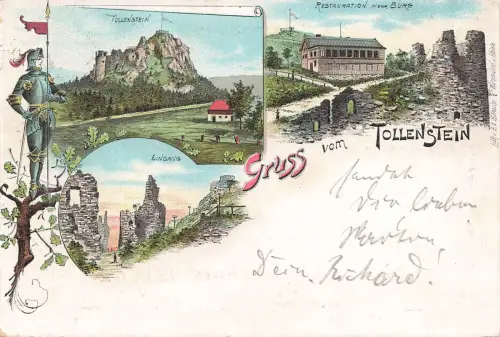 TOLLENSTEIN
RESTAURATION IN DER BURG
EINGANG
Gruss vom TOLLENSTEIN
sendet
Dir lieben
Dein Richard!